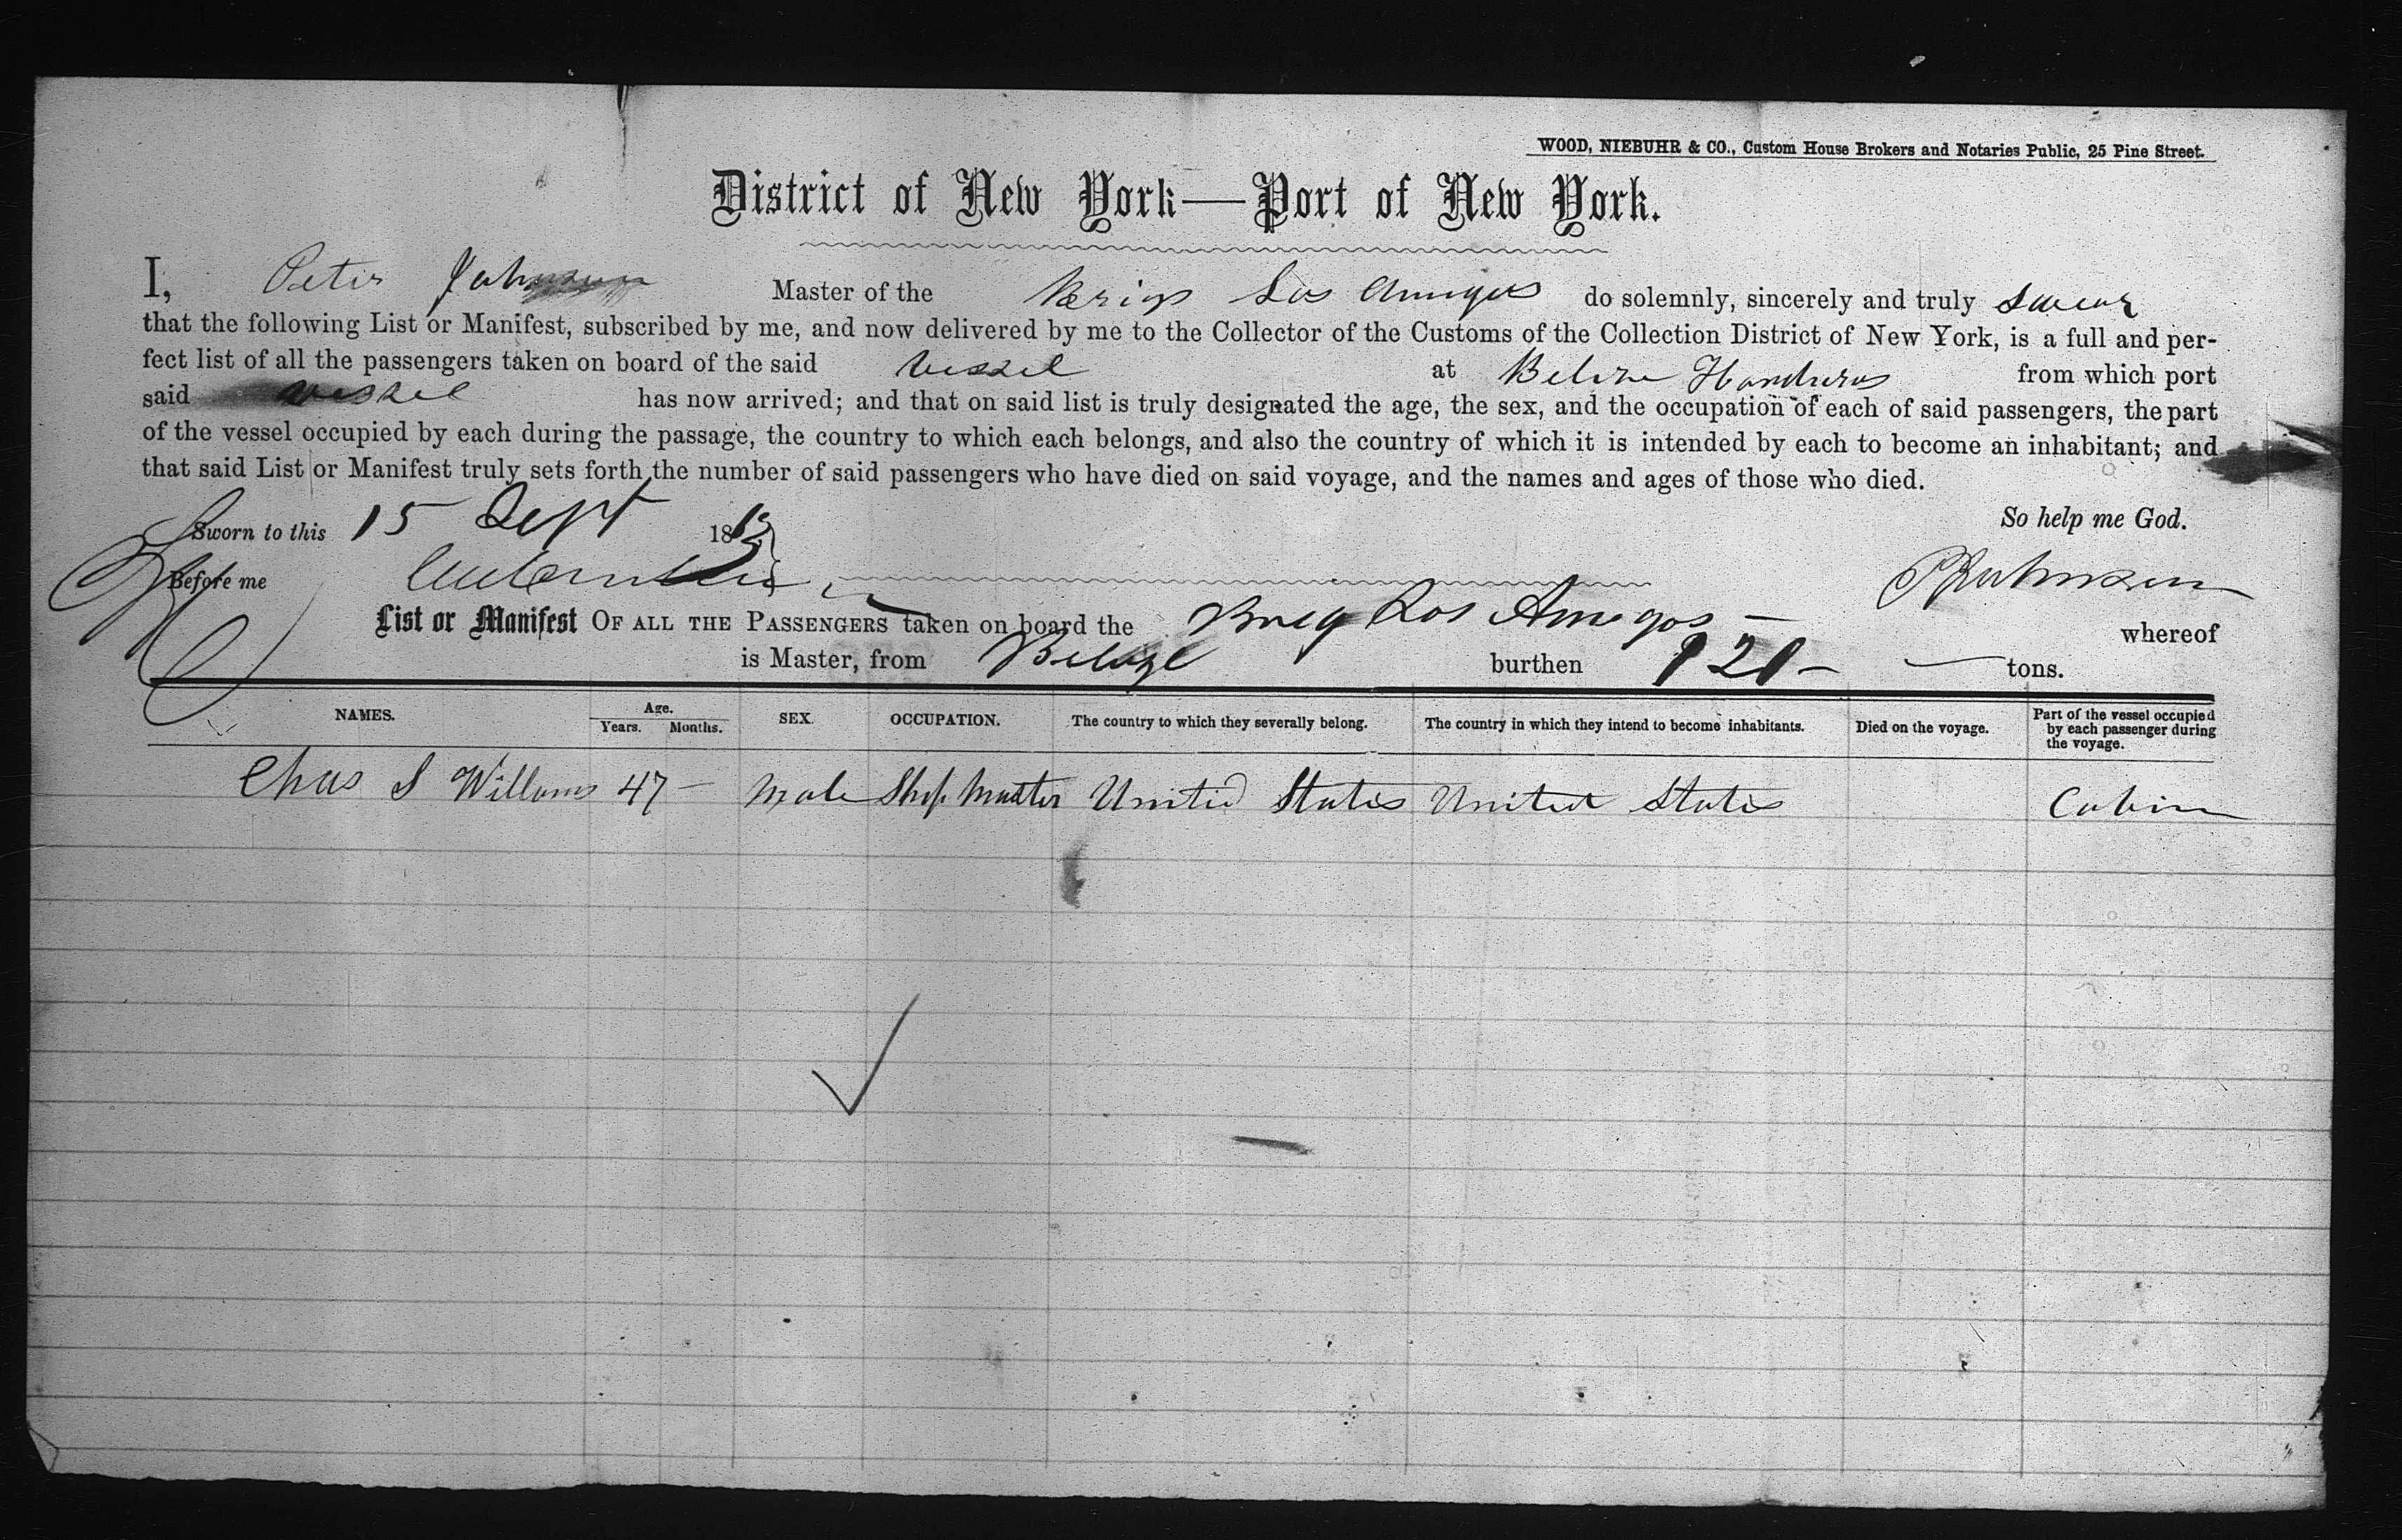 WOOD, NIEBUHR & CO., Custom House Brokers and Notaries Public, 25 Pine Street.
District of New York—Port of New York.
I, Peter Johnson Master of the Brig Los Amigos do solemnly, sincerely and truly swear
that the following List or Manifest, subscribed by me, and now delivered by me to the Collector of the Customs of the Collection District of New York, is a full and per-
fect list of all the passengers taken on board of the said vessel at Belize Honduras from which port
said vessel has now arrived; and that on said list is truly designated the age, the sex, and the occupation of each of said passengers, the part
of the vessel occupied by each during the passage, the country to which each belongs, and also the country of which it is intended by each to become an inhabitant; and
that said List or Manifest truly sets forth the number of said passengers who have died on said voyage, and the names and ages of those who died.
So help me God.
Sworn to this 15 Sept 18
Before me
P Johnson
List or Manifest OF ALL THE PASSENGERS taken on board the Brig Los Amigos — whereof
is Master, from Belize burthen 121 — tons.
NAMES. Age. Years. Months. SEX. OCCUPATION. The country to which they severally belong. The country in which they intend to become inhabitants. Died on the voyage. Part of the vessel occupied by each passenger during the voyage.
Chas S Willams 47 — Male Ship Master United States United States Cabin